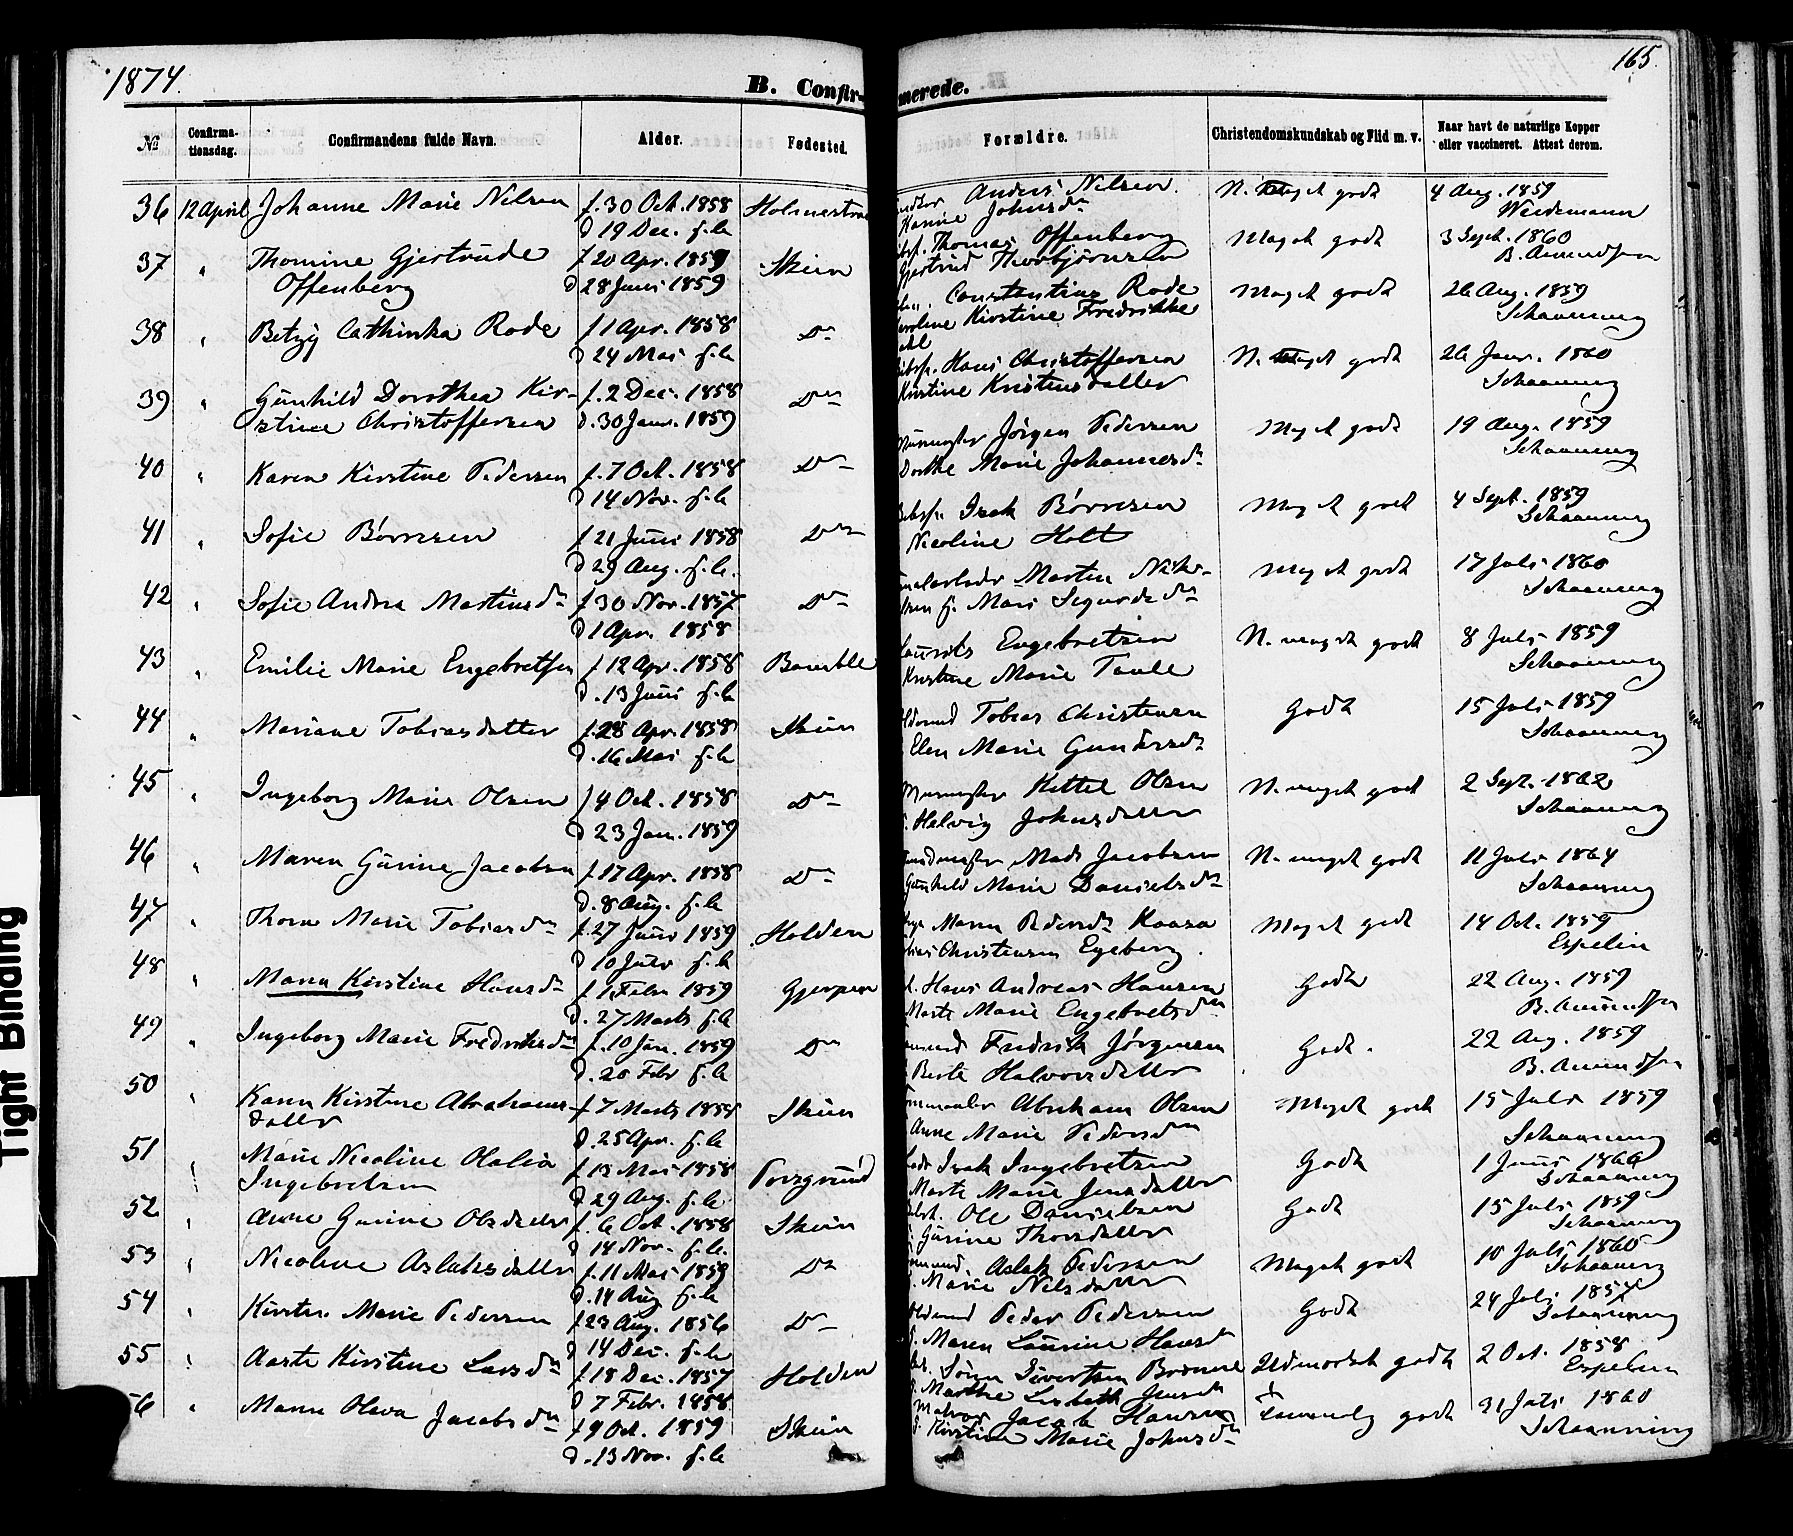 1874.
165.
B. Confirmerede.
№
Confirmationsdag.
Confirmandens fulde Navn.
Alder.
Fødested.
Forældre.
Christendomskundskab og Flid m. v.
Naar havt de naturlige Kopper eller vaccineret. Attest derom.
36 12 April Johanne Marie Nilsen f. 30 Oct. 1858 Anders Nilsen. N. Meget godt 4 Aug. 1859
d 19 Dec. s. A. Hanne Johnsdr Weidemann
37 " Thomine Gjertrude f 20 Apr. 1859 Skien Thomas Offenberg Meget godt 3 Sept. 1860
Offenberg d 28 Juni 1859 Gjertrud Thorbjörnsen B. Amundsen
38 " Betzy Cathinka Rode f 1 Apr. 1858 Do Constantius Rode Meget godt 26 Aug. 1859
d 24 Mai s. A. Kirstine Fredrikke Schaanning
39 " Gunhild Dorothea Kir- f. 2 Dec. 1858 Do Hans Christoffersen N. Meget godt 26 Janr. 1860
stine Christoffersen d. 30 Janr. 1859 Kirstine Kristensdatter Schaanning
40 " Karen Kirstine Pedersen f. 7 Oct. 1858 Do Jørgen Pedersen Meget godt 19 Aug. 1859
d 14 Nov. s. A. Dorthe Marie Johannesdr Schaanning
41 " Sofie Börresen f 21 Juni 1858 Do Isak Börresen Meget godt 4 Sept. 1859
d 29 Aug. s. A. Nicoline Holt Schaanning
42 " Sofie Andrea Martinsdr f 30 Nov. 1857 Do Marten Meget godt 17 Juli 1860
d 1 Apr. 1858 Mari Sigurdsdr Schaanning
43 " Emilie Marie Engebretsen f 12 Apr. 1858 Bamble Engebretsen N. meget godt 8 Juli 1859
d. 13 Juni s. A. Kirstine Marie Schaanning
44 " Mariane Tobiasdatter f. 28 Apr. 1858 Skien Tobias Christensen Godt 15 Juli 1859
d. 16 Mai s. A. Elen Marie Gundersdr Schaanning
45 " Ingeborg Marie Olsen f 4 Oct. 1858 Do Kettel Olsen N. meget godt 2 Sept. 1862
d 23 Jan. 1859 Helvig Johnsdatter Schaanning
46 " Maren Gurine Jacobsen f 17 Apr. 1858 Do Mads Jacobsen N. meget godt 11 Juli 1864
d. 8 Aug. s. A. Gunhild Marie Danielsdr Schaanning
47 " Thora Marie Tobiasdr f. 27 Juni 1859 Holden Maren Pedersdr Kaasa Meget godt 14 Oct. 1859
d 10 Julr s. A. Christensen Egeberg. Espelin
48 " Maren Kirstine Hansdr f. 1 Febr 1859 Gjerpen Hans Andreas Hansen Godt 22 Aug. 1859
d. 27 Marts s. A. Marte Marie Engebretsdr B. Amundsen
49 " Ingeborg Marie Fredriksdr f. 10 Jan. 1859 Do Fredrik Jørgensen Godt. 22 Aug. 1859
d. 20 Febr s. A. Berte Halvorsdatter B. Amundsen
50 Karen Kirstine Abrahams- f 7 Marts 1858 Skien Abraham Olsen Meget godt 15 Juli 1859
datter d. 25 Apr. s. A. Anne Marie Pedersdr Schaanning
51 " Marie Nicoline Olalia f 13 Mai 1858 Porsgrund Isak Ingebretsen Godt 1 Juni 1866
Ingebretsen d 29 Aug. s. A. Marte Marie Jensdatter Schaanning
52 " Anne Gurine Olsdatter f. 6 Oct. 1858 Skien Ole Danielsen Godt 15 Juli 1859
d 14 Nov. s. A. Gurine Thorsdatter Schaanning
53 " Nicoline Aslaksdatter f. 11 Mai 1859 Do Aslak Pedersen Meget godt 10 Juli 1860
d. 14 Aug s. A. Marie Nilsdatter Schaanning
54 " Kirsten Marie Pedersen f 23 Aug. 1856 Do Peder Pedersen Godt 24 Juli 1857
d 14 Dec. s. A. Maren Laurine Hansdr Schaanning
55 " Aaste Kirstine Larsdr f 18 Dec. 1857 Holden Sivertsen Udmærket godt 2 Oct. 1858
d 7 Febr. 1858 Marthe Lisbeth Jensdr Espelin
56 " Maren Olava Jacobsdr f 9 Oct. 1859 Skien Jacob Hansen Temmelig godt 31 Juli 1860
d. 13 Nov. s. A. Kirstine Marie Johnsdr Schaanning
Tight Binding